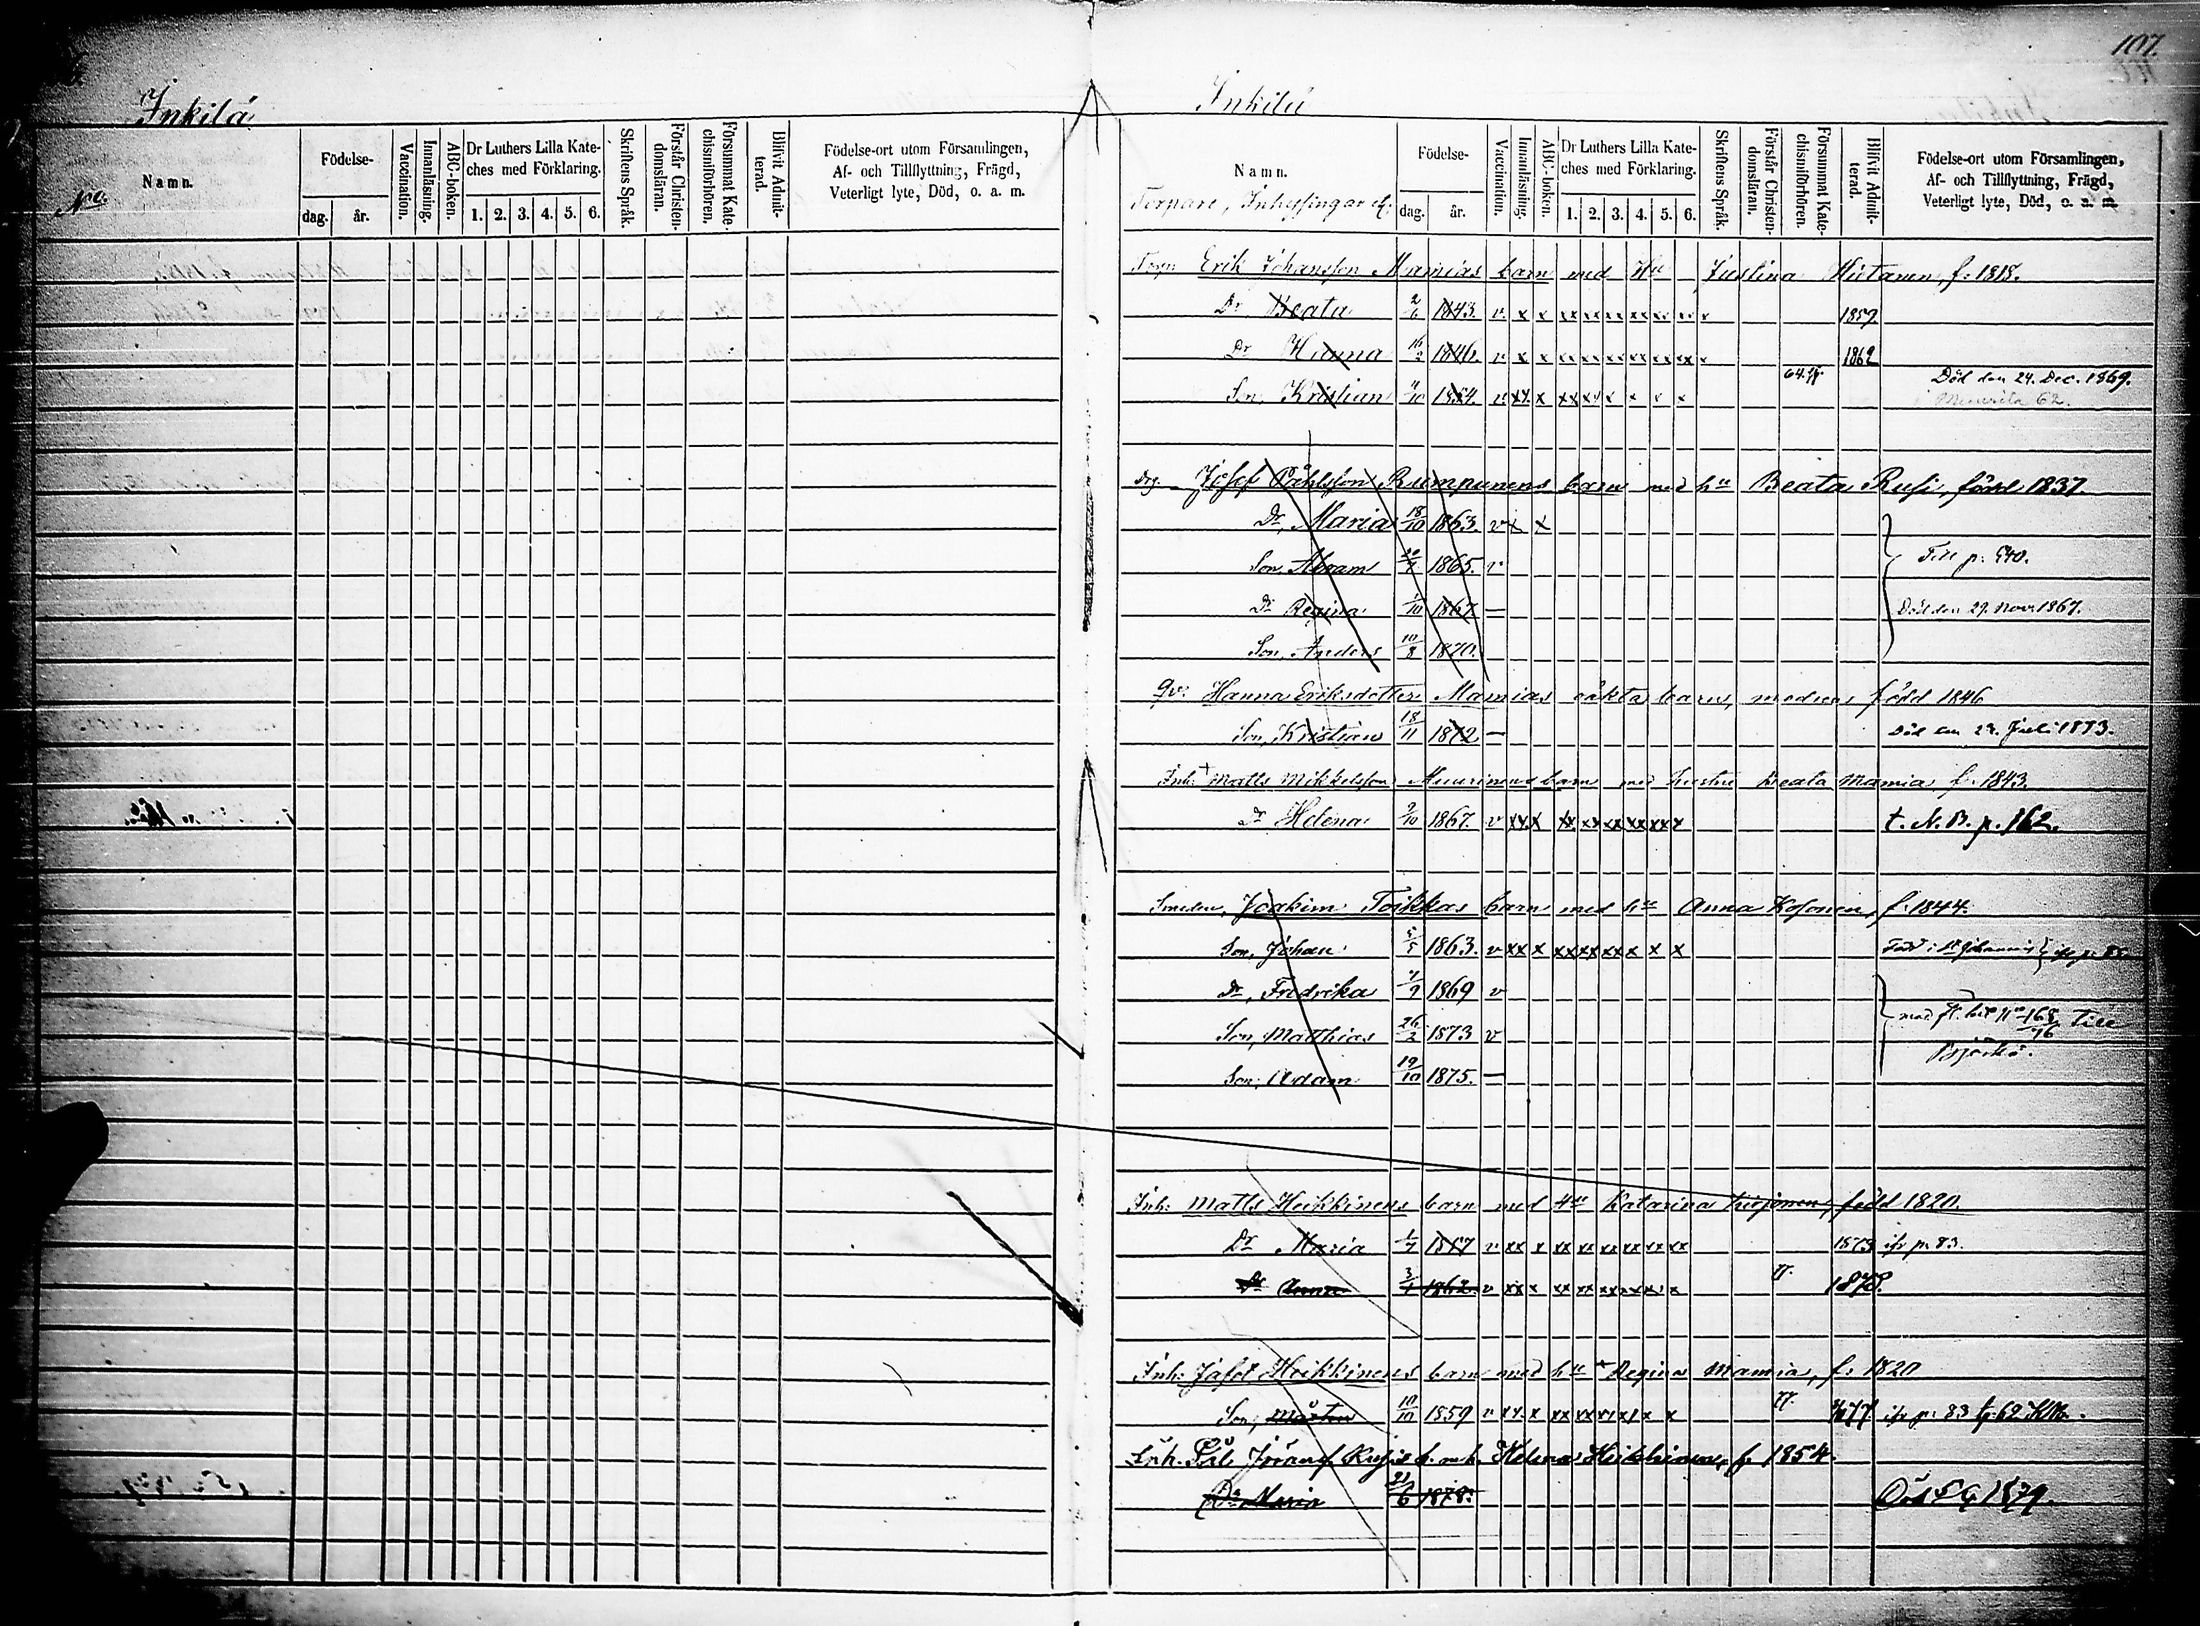 107.
Inkilä
Inkilä
No.
Namn.
Födelse-
dag. år.
Vaccination.
Innanläsning.
ABC-boken.
Dr Luthers Lilla Kate-
ches med Förklaring.
1. 2. 3. 4. 5. 6.
Skriftens Språk.
Förstår Christen-
domsläran.
Försummat Kate-
chismiförhören.
Blifvit Admit-
terad.
Födelse-ort utom Församlingen,
Af- och Tillflyttning, Frägd,
Veterligt lyte, Död, o. a. m.
Namn.
Torpare, Inhysingar
Födelse-
dag. år.
Vaccination.
Innanläsning.
ABC-boken.
Dr Luthers Lilla Kate-
ches med Förklaring.
1. 2. 3. 4. 5. 6.
Skriftens Språk.
Förstår Christen-
domsläran.
Försummat Kate-
chismiförhören.
Blifvit Admit-
terad.
Födelse-ort utom Församlingen,
Af- och Tillflyttning, Frägd,
Veterligt lyte, Död, o. a. m.
Erik Johansson Mamias barn med Hu Justina Hietanen, f. 1818.
Dr Beata 2/6 1843. v x x xx xx xx xx xx xx x 1859
Dr Hanna 16/2 1846. v x x xx xx xx xx xx xx x 1862
Död den 24. Dec. 1869.
Son, Kristian 4/10 1854. v xx x xx xx x x x x
Josef Påhlsson Rumpunens barn med hu Beata Rusi, född 1837.
Dr, Maria 18/10 1863. v x x
Son, Abram 1865. v Till p. 540.
Dr Regina 1/10 1867 — Död den 29. Nov. 1867.
Son, Anders 10/8 1870.
Hanna Eriksdotter Mamias oäkta barn, modren född 1846
Son, Kristian 18/11 1872 — Död den 29. Juli 1873.
Inh: + Matts Mikkelsson Muurinens barn med hustru Beata Mamia f. 1843.
Dr Helena 2/10 1867. v xx x xx xx xx xx xx x t. N.B. p. 162.
Smeden, Joakim Toikkas barn med hu Anna Kosonen, f. 1844.
Son, Johan 5/5 1863. v xx x xx xx xx x x x
Dr, Fredrika 7/9 1869 v
Son, Matthias 26/2 1873 v
till
Björkö.
Son, Adam 19/10 1875. —
Inh: Matts Heikkinens barn med Hu Katarina född 1820.
Dr Maria 1/7 1857 v xx x xx xx xx xx xx xx 1873 ifr p. 83.
Dr Anna 3/4 1862 v xx x xx xx xx xx xx x 1878.
Inh: Jafet Heikkinens barn med hu + Regina Mamia, f. 1820
Son, Mårten 10/10 1859 v xx x xx xx xx xx x x 77. ifr p. 83
Inh. Pål Rusis b. m. h. Helena Heikkinen, f. 1854.
Dr Maria 21/6 1878. Död 1879.